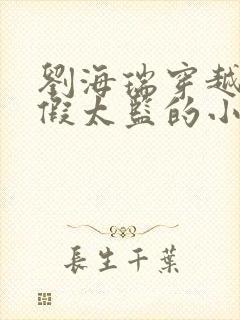 劉海瑞穿越
假太監的小
長生千葉